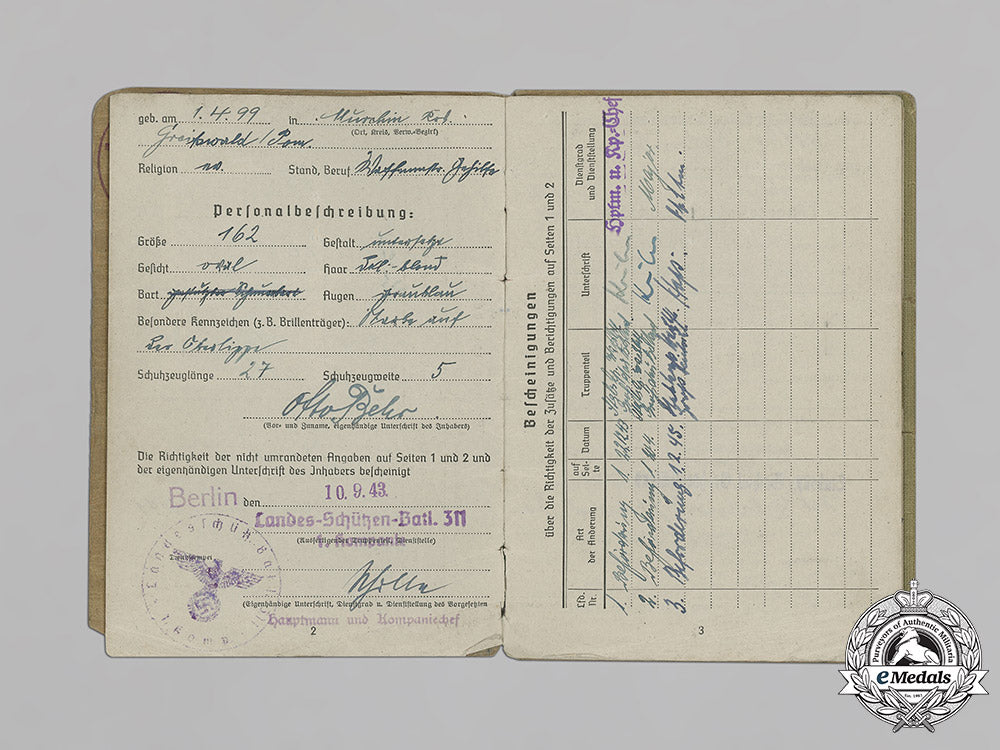 geb. am 1.4.99 in Murchin Krs.
(Ort, Kreis, Verw.-Bezirk)
Greifswald / Pom.
Religion ev. Stand, Beruf Waffenmstr. Gehilfe
Personalbeschreibung:
Größe 162 Gestalt untersetzt
Gesicht oval Haar dkl.-blond
Bart Augen graublau
Besondere Kennzeichen (z.B. Brillenträger): Narbe auf
der Oberlippe
Schuhzeuglänge 27 Schuhzeugweite 5
Otto Behr
(Vor- und Zuname, eigenhändige Unterschrift des Inhabers)
Die Richtigkeit der nicht umrandeten Angaben auf Seiten 1 und 2 und
der eigenhändigen Unterschrift des Inhabers bescheinigt
Berlin den 10.9.43.
Landes-Schützen-Batl. 311
1. Kompanie
(Ausfertigender Truppenteil, Dienststelle)
Dienststempel
(Eigenhändige Unterschrift, Dienstgrad u. Dienststellung des Vorgesetzten)
Hauptmann und Kompaniechef
2
Bescheinigungen
über die Richtigkeit der Zusätze und Berichtigungen auf Seiten 1 und 2
Lfd. Nr.
Art der Änderung
auf Seite
Datum
Truppenteil
Unterschrift
Dienstgrad und Dienststellung
1. Beförderung 1 1.12.43
Hptm. u. Kp.-Chef
2. Beförderung 1
Major
3. Beförderung 1.2.45.
3
Purveyors of Authentic Militaria
eMedals
Est. 1967